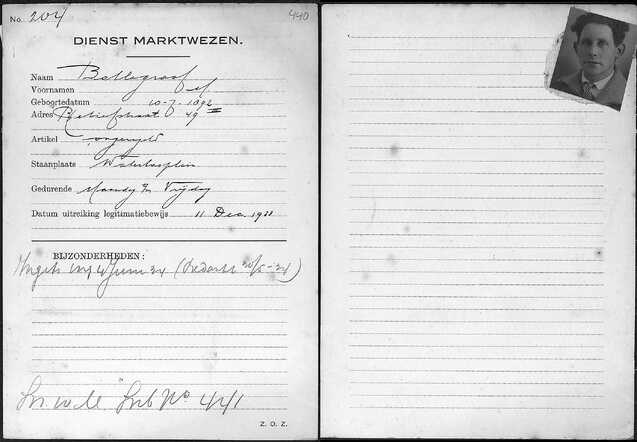 No. 204
440
DIENST MARKTWEZEN.
Naam Battegraaf
Voornamen
Geboortedatum 10-7-1892
Adres Retiefstraat 49
Artikel ongeregeld
Staanplaats Waterlooplein
Gedurende Maandag t/m Vrijdag
Datum uitreiking legitimatiebewijs 11 Dec. 1931
BIJZONDERHEDEN:
4 Juni 34 ( 30/5-34)
No 441
Z. O. Z.